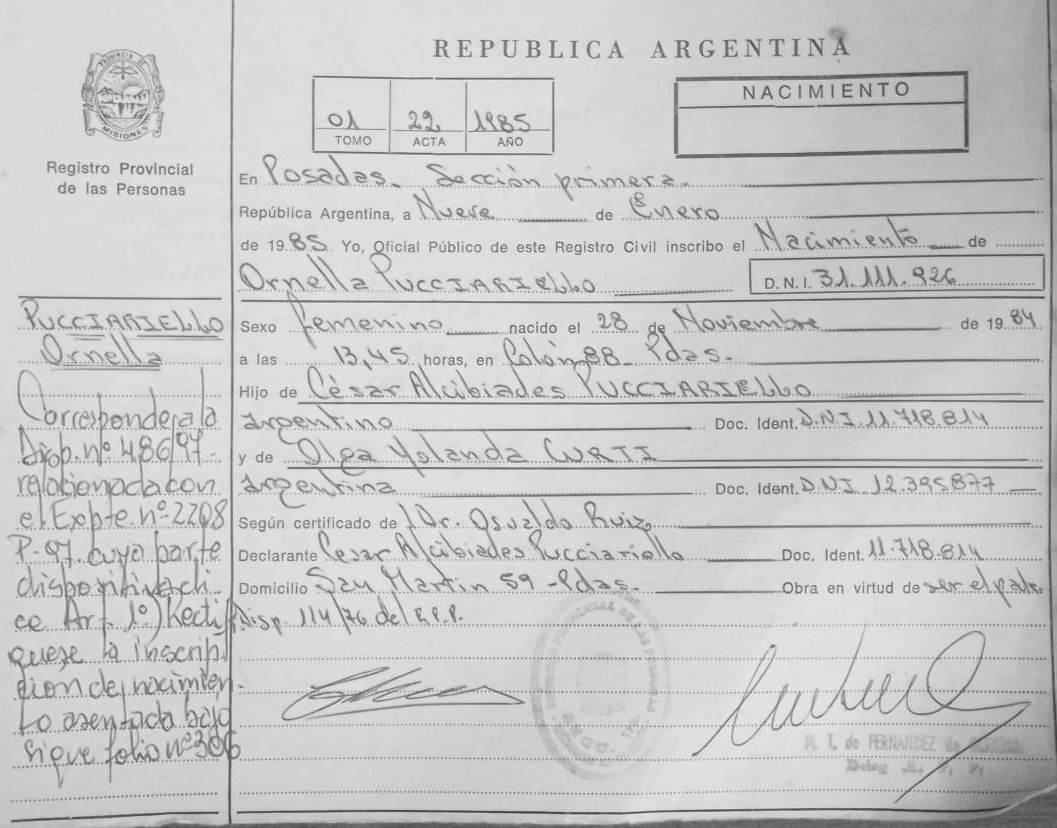 PROVINCIA DE
MISIONES
Registro Provincial
de las Personas
REPUBLICA ARGENTINA
01 22 1985
TOMO ACTA AÑO
NACIMIENTO
En Posadas. Sección primera.
República Argentina, a Nueve de Enero
de 19 85. Yo, Oficial Público de este Registro Civil inscribo el Nacimiento de
Ornella PUCCIARIELLO D.N.I. 31.111.926
Sexo femenino nacido el 28 de Noviembre de 19 84
a las 13,45 horas, en Colón 88 Pdas.
Hijo de César Alcibiades PUCCIARIELLO
argentino Doc. Ident. D.N.I. 11.718.814
y de Olga Yolanda CURTI
argentina Doc. Ident. D.N.I. 12.395877
Según certificado de Dr. Osvaldo Ruiz
Declarante Cesar Alcibiades Pucciariello Doc. Ident. 11.718.814
Domicilio San Martin 59 - Pdas. Obra en virtud de ser el padre
Disp. 114/76 del R.P.P.
M. T. de FERNANDEZ de
PUCCIARIELLO
Ornella
Corresponde a la
Disp. nº 486/97-
relacionada con
el Expte. nº 2208
P-97. cuyo parte
dispositiva di-
ce Art. 1º) Recti
quese la inscrip
cion de nacimien-
to asentada bajo
sigue folio nº 306